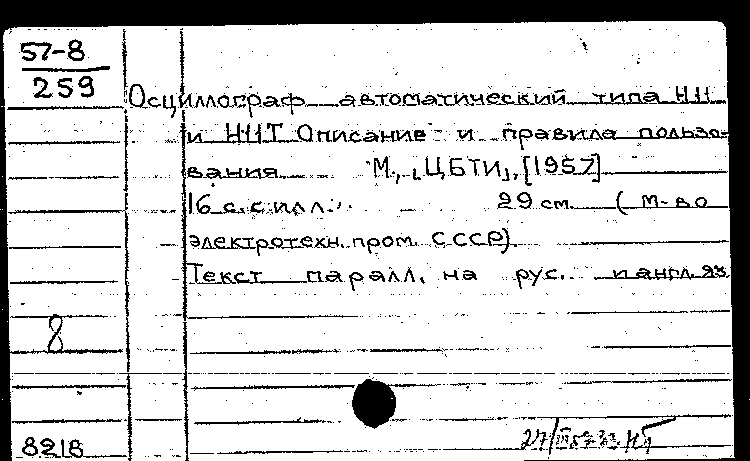 57-8
259
Осциллограф автоматический типа Н11
и Н11Т Описание и правила пользо-
вания М., "ЦБТИ", [1957]
16 с. с илл. 29 см. ( М-во
электротехн. пром. СССР)
Текст паралл. на рус. и англ. яз
8
8218